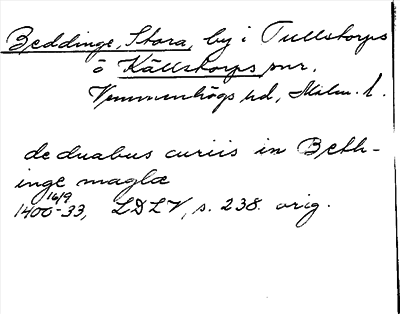 Beddinge, Stora, by i Tullstorps
o Källstorps snr,
Vemmenhögs hd, Malm. l.
de duabus curiis in Beth-
inge maglæ
16/9
1400-33, LDLV, s. 238. orig.